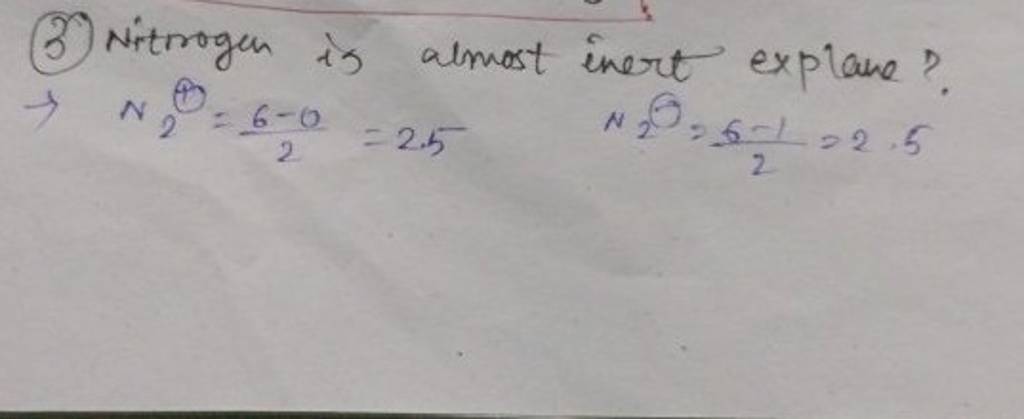 ③ Nitrogen is almost inert explane ?
→ N₂⊕ = 6-0/2 = 2.5 N₂⊖ = 6-1/2 = 2.5